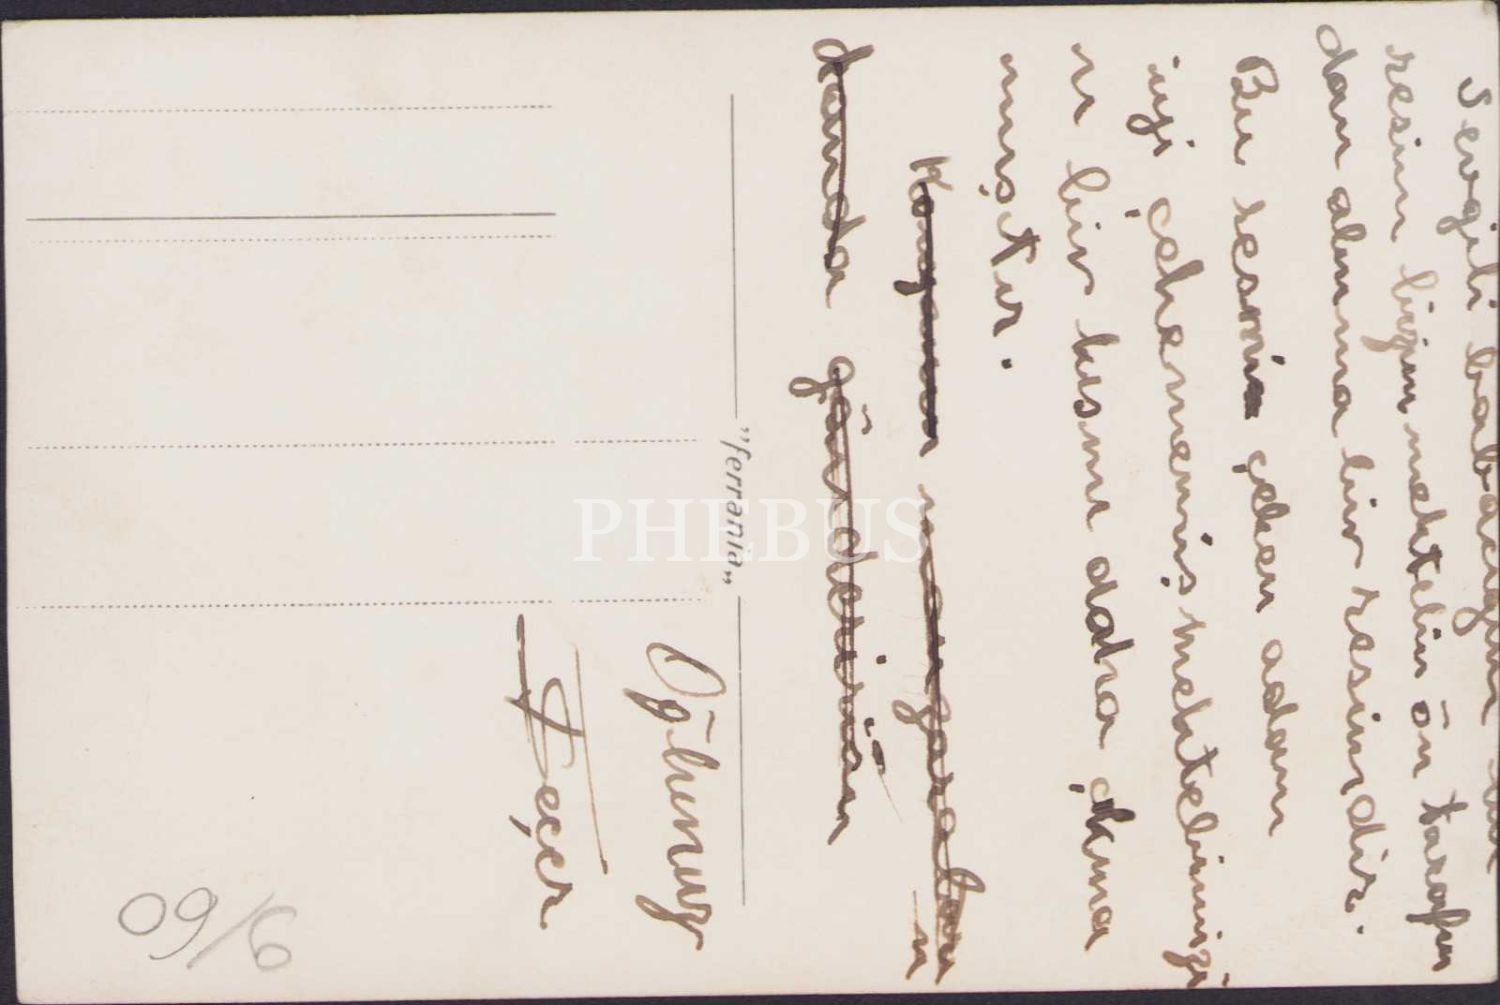 Sevgili babacığım bu
resim bizim mektebin ön tarafın
dan alınma bir resimdir.
Bu resmin çeken adam
iyi çekememiş mektebimizi
n bir kısmı daha çıkma
mıştır.
manzaraları
n
da gönderirim
Oğlunuz
"ferrania"
9/60
PHEBUS